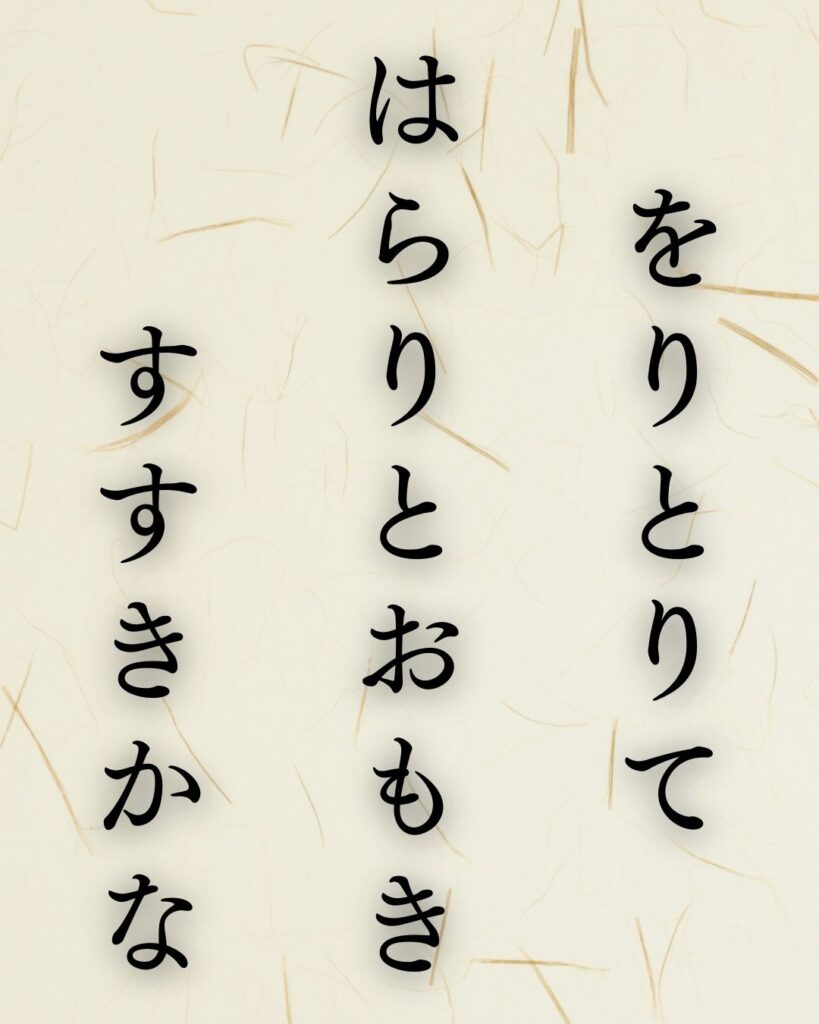 をりとりて
はらりとおもき
すすきかな